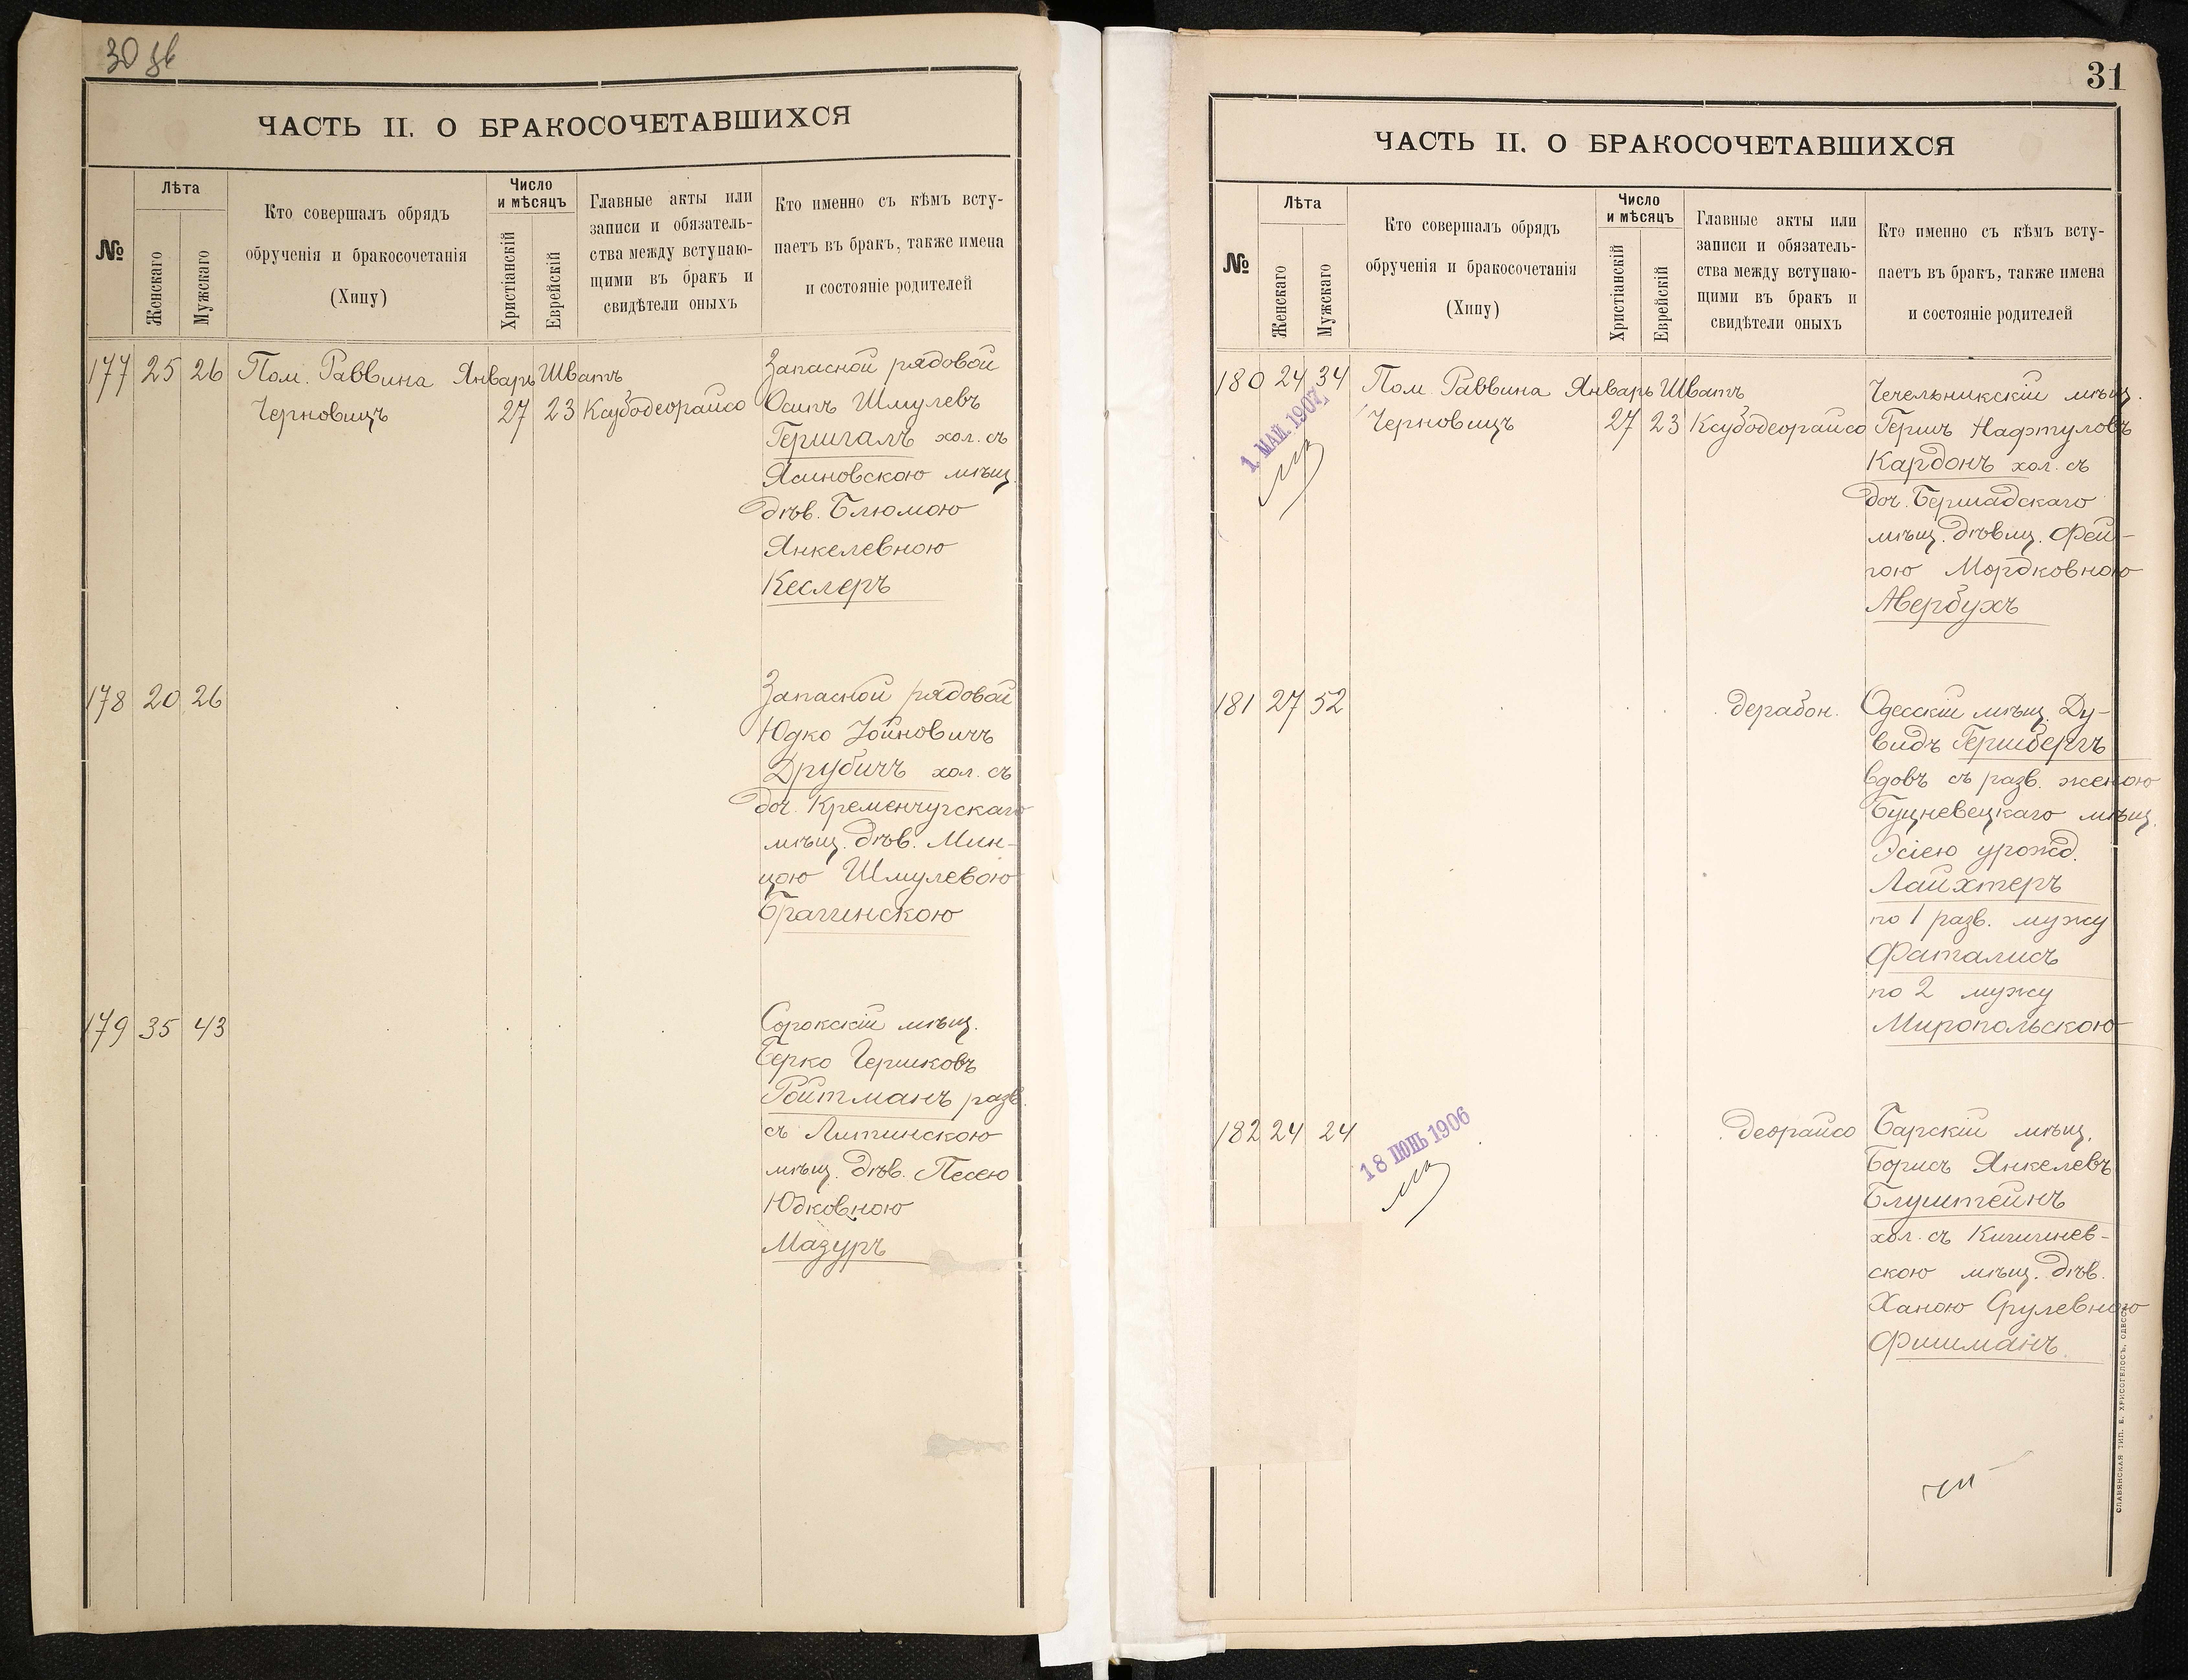 30 об
ЧАСТЬ II. О БРАКОСОЧЕТАВШИХСЯ
№
Лѣта
Женскаго
Мужскаго
Кто совершалъ обрядъ
обрученія и бракосочетанія
(Хипу)
Число
и мѣсяцъ
Христіанскій
Еврейскій
Главные акты или
записи и обязатель-
ства между вступаю-
щими въ бракъ и
свидѣтели оныхъ
Кто именно съ кѣмъ всту-
паетъ въ бракъ, также имена
и состояніе родителей
177 25 26 Пом. Раввина Январь Шватъ
Черновицъ 27 23 Ксубодеорайсо
Запасной рядовой
Осипъ Шмулевъ
Гершгалъ хол. съ
Ясиновскою мѣщ.
дѣв. Блюмою
Янкелевною
Кеслеръ
178 20 26
Запасной рядовой
Юдко Іойновичъ
Друбичъ хол. съ
доч. Кременчугскаго
мѣщ. дѣв. Мин-
цою Шмулевою
Брагинскою
179 35 43
Сорокскій мѣщ.
Берко Гершковъ
Ройтманъ разв.
съ Литинскою
мѣщ. дѣв. Песею
Юдковною
Мазуръ
31
ЧАСТЬ II. О БРАКОСОЧЕТАВШИХСЯ
№
Лѣта
Женскаго
Мужскаго
Кто совершалъ обрядъ
обрученія и бракосочетанія
(Хипу)
Число
и мѣсяцъ
Христіанскій
Еврейскій
Главные акты или
записи и обязатель-
ства между вступаю-
щими въ бракъ и
свидѣтели оныхъ
Кто именно съ кѣмъ всту-
паетъ въ бракъ, также имена
и состояніе родителей
180 24 34 Пом. Раввина Январь Шватъ
Черновицъ 27 23 Ксубодеорайсо
1. МАЙ. 1907
Чечельникскій мѣщ.
Гершъ Нафтуловъ
Кардонъ хол. съ
доч. Бершадскаго
мѣщ. дѣвиц. Фей-
гою Мордковною
Авербухъ
181 27 52
дерабон.
Одесскій мѣщ. Ду-
видъ Гершбергъ
вдовъ съ разв. женою
Буцневецкаго мѣщ.
Эсіею урожд.
Лайхтеръ
по 1 разв. мужу
Фаталисъ
по 2 мужу
Миропольскою
182 24 24
18 ІЮНЬ 1906
деорайсо
Барскій мѣщ.
Борисъ Янкелевъ
Блуштейнъ
хол. съ Кишинев-
скою мѣщ. дѣв.
Ханою Срулевною
Фишманъ
СЛАВЯНСКАЯ ТИП. Е. ХРИСОГЕЛОСЪ, ОДЕССА